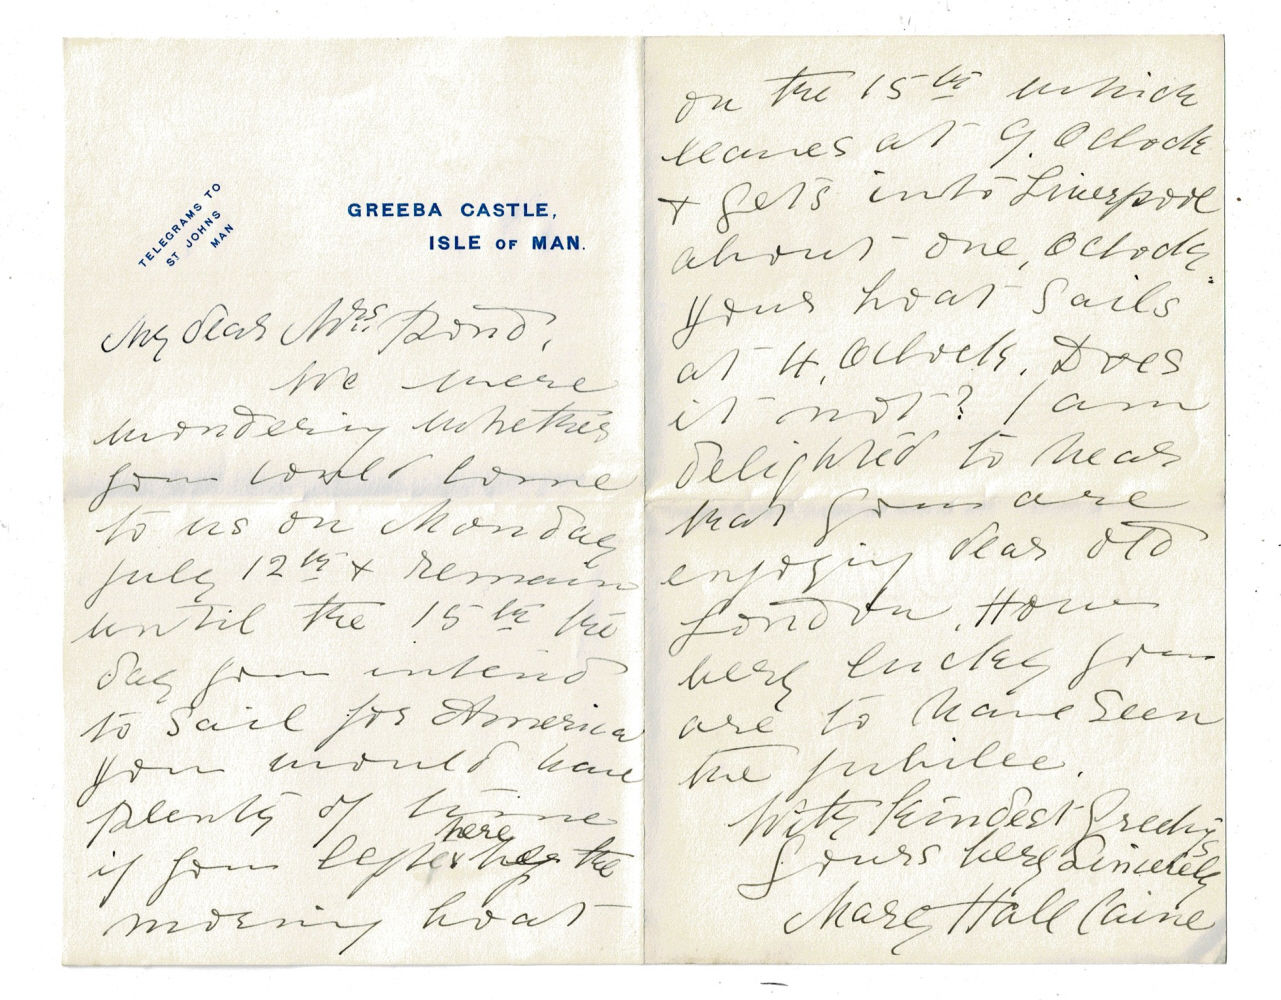 TELEGRAMS TO
ST JOHNS
MAN
GREEBA CASTLE,
ISLE OF MAN.
My dear Mrs Pond,
We were
wondering whether
you could come
to us on Monday
July 12th & remain
until the 15th the
day you intend
to sail for America
you would have
plenty of time
here
if you left by the
morning boat
on the 15th which
leaves at 9. Oclock
& gets into Liverpool
about one, Oclock,
your boat Sails
at 4, Oclock. Does
it not? I am
delighted to hear
that you are
enjoying dear old
London. How
very lucky you
are to have Seen
the jubilee.
With kindest Greetings
Yours very Sincerely
Mary Hall Caine